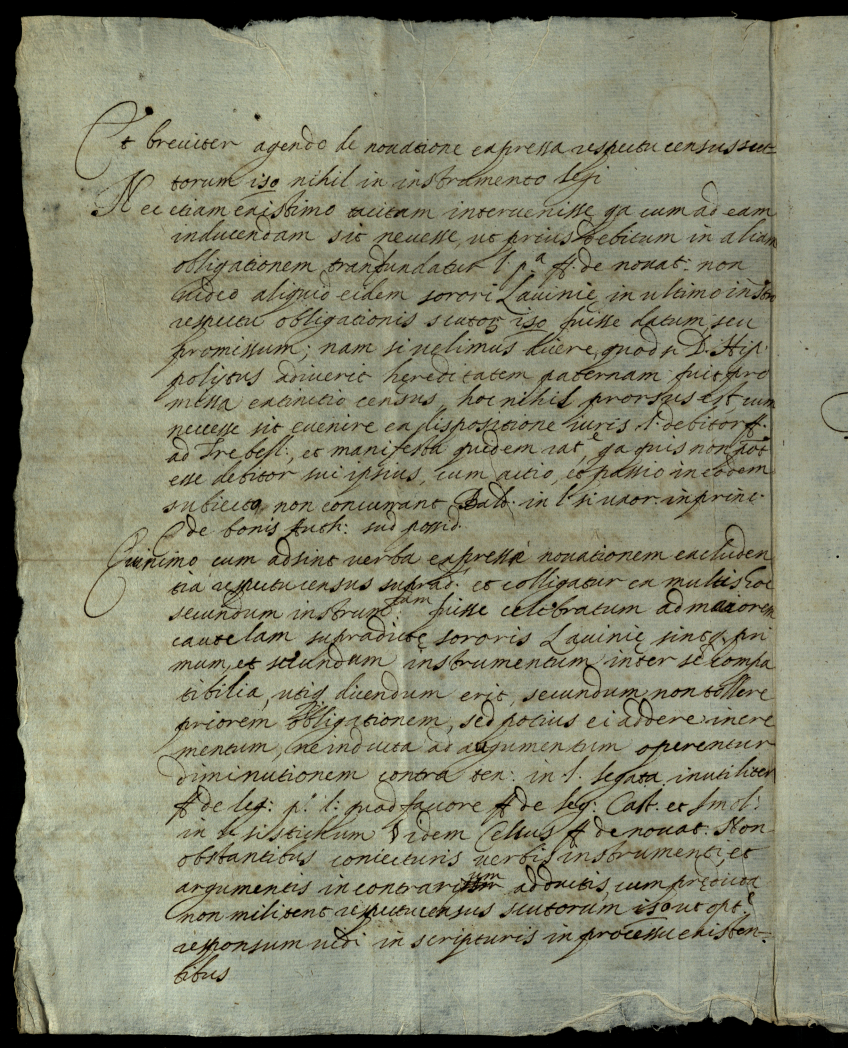 Et breuiter agendo de nouatione expressa respectu census scu-
torum 150 nihil in instrumento legi
Nec etiam existimo tacitam interuenisse, qa cum ad eam
inducendam sit necesse, ut prius debitum in aliam
obligationem transfundatur l. p.a ff. de nouat: non
uideo aliquid eidem sorori Lauinię in ultimo instro
respectu obligationis scutor 150 fuisse datum, seu
promissum; nam si uelimus dicere, quod si D. Hip-
politus adiuerit hereditatem paternam fuit pro
missa extinctio census, hoc nihil prorsus est, cum
necesse sit euenire ex dispositione iuris l. debitor ff.
ad Trebell:, et manifesta quidem rat.e, qa quis non pot
esse debitor sui ipsius, cum actio, et passio in eodem
subiecto non concurrant Bald. in l. si uxor. in princ.
de bonis auth: iud possid.
Quinimo cum adsint verba expressè nouationem exluden
tia respectu census suprad.i et colligatur ex multis hoc
secundum instrum.tum fuisse celebratum ad maiorem
cautelam supradictę sororis Lauinię, sintq. pri
mum, et secundum instrumentum inter se compa
tibilia, utiq. dicendum erit, secundum non tollere
priorem obligationem, sed potius ei addere incre
mentum, ne inducta ad augumentum operentur
diminutionem contra ten: in l. legata inutiliter
ff. de leg: p.o l: quod fauore ff. de leg: Cast. et Imol:
in l. si stichum § idem Celsus ff. de nouat. Non
obstantibus coniecturis verbis instrumenti, et
argumentis in contrarium adductis, cum prędicta
non militent respectu census scutorum 150 ut opt.e
responsum uidi in scripturis in processu existen-
tibus